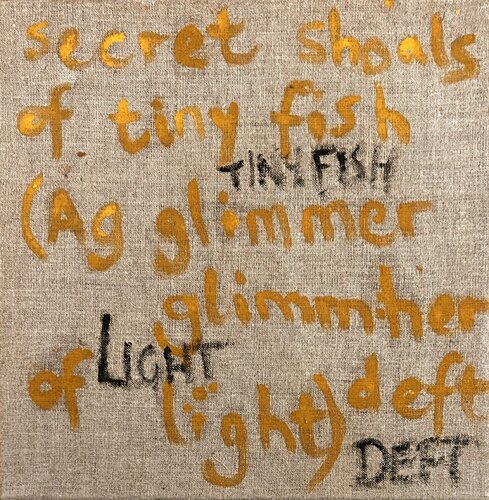 secret shoals
of tiny fish
TINY FISH
(Ag glimmer
glimm·her
LIGHT
of lïght) deft
DEFT